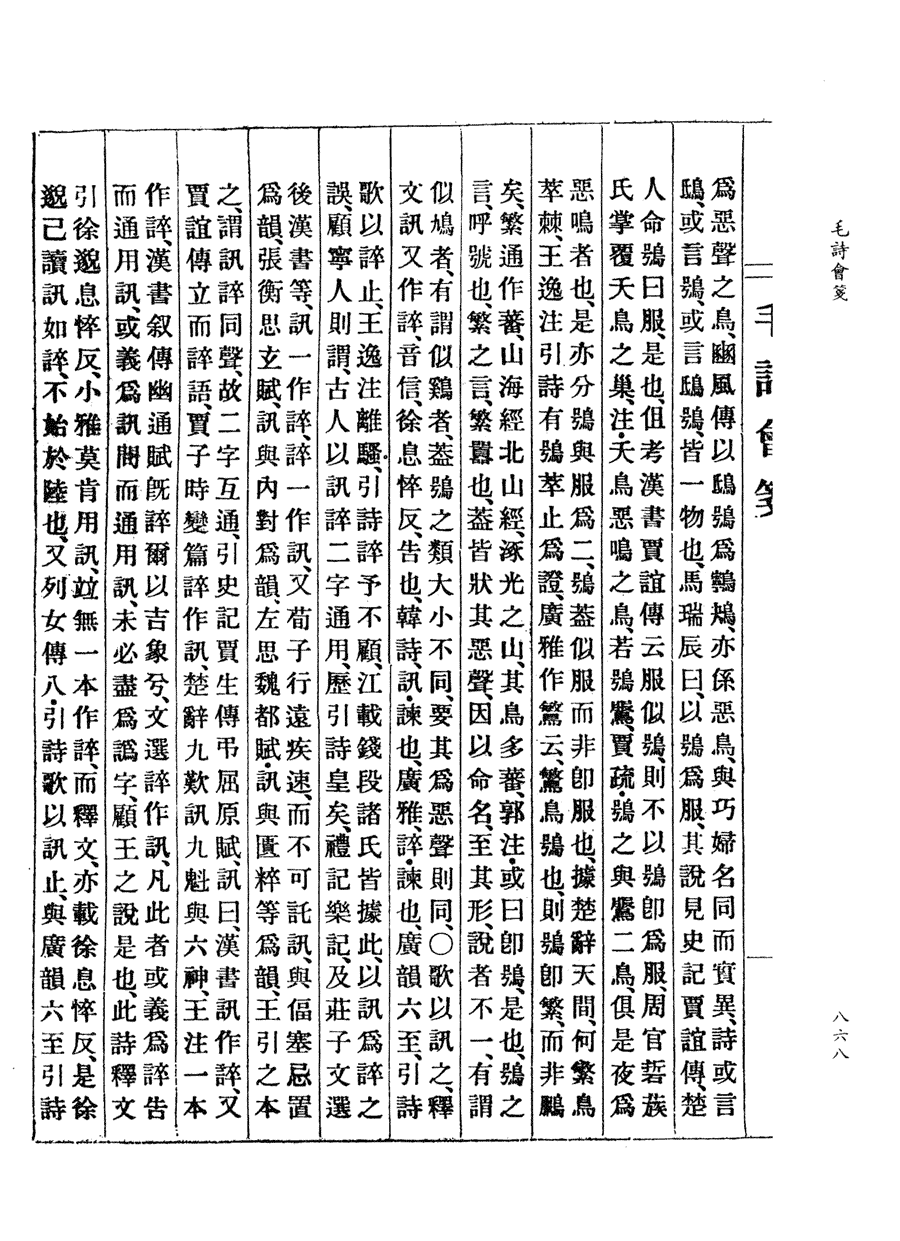 毛詩會箋
八六八
毛詩會箋
爲惡聲之鳥、豳風傳以鴟鴞爲鸋鴂、亦係惡鳥、與巧婦名同而實異、詩或言
鴟、或言鴞、或言鴟鴞、皆一物也、馬瑞辰曰、以鴞爲服、其說見史記賈誼傳、楚
人命鴞曰服、是也、但考漢書賈誼傳云服似鴞、則不以鴞卽爲服、周官硩蔟
氏掌覆夭鳥之巢、注、夭鳥惡鳴之鳥、若鴞鵩、賈疏、鴞之與鵩二鳥、俱是夜爲
惡鳴者也、是亦分鴞與服爲二、鴞蓋似服而非卽服也、據楚辭天問、何繁鳥
萃棘、王逸注引詩有鴞萃止爲證、廣雅作鷩云、鷩鳥鴞也、則鴞卽繁、而非鵩
矣、繁通作蕃、山海經北山經、涿光之山、其鳥多蕃、郭注、或曰卽鴞、是也、鴞之
言、呼號也、繁之言、繁囂也、蓋皆狀其惡聲、因以命名、至其形、說者不一、有謂
似鳩者、有謂似鷄者、蓋鴞之類大小不同、要其爲惡聲則同、〇歌以訊之、釋
文訊又作誶、音信、徐息悴反、告也、韓詩、訊、諫也、廣雅、誶、諫也、廣韻六至、引詩
歌以誶止、王逸注離騷、引詩誶予不顧、江載錢段諸氏皆據此、以訊爲誶之
誤、顧寧人則謂、古人以訊誶二字通用、歷引詩皇矣、禮記樂記、及莊子文選
後漢書等、訊一作誶、誶一作訊、又荀子行遠疾速、而不可託訊、與偪塞忌置
爲韻、張衡思玄賦、訊與內對爲韻、左思魏都賦、訊與匱粹等爲韻、王引之本
之、謂訊誶同聲、故二字互通、引史記賈生傳弔屈原賦、訊曰、漢書訊作誶、又
賈誼傳立而誶語、賈子時變篇誶作訊、楚辭九歎訊九鬿與六神、王注一本
作誶、漢書叙傳幽通賦旣誶爾以吉象兮、文選誶作訊、凡此者或義爲誶告
而通用訊、或義爲訊問而通用訊、未必盡爲譌字、顧王之說是也、此詩釋文
引徐邈息悴反、小雅莫肯用訊、竝無一本作誶、而釋文、亦載徐息悴反、是徐
邈已讀訊如誶、不始於陸也、又列女傳八、引詩歌以訊止、與廣韻六至引詩